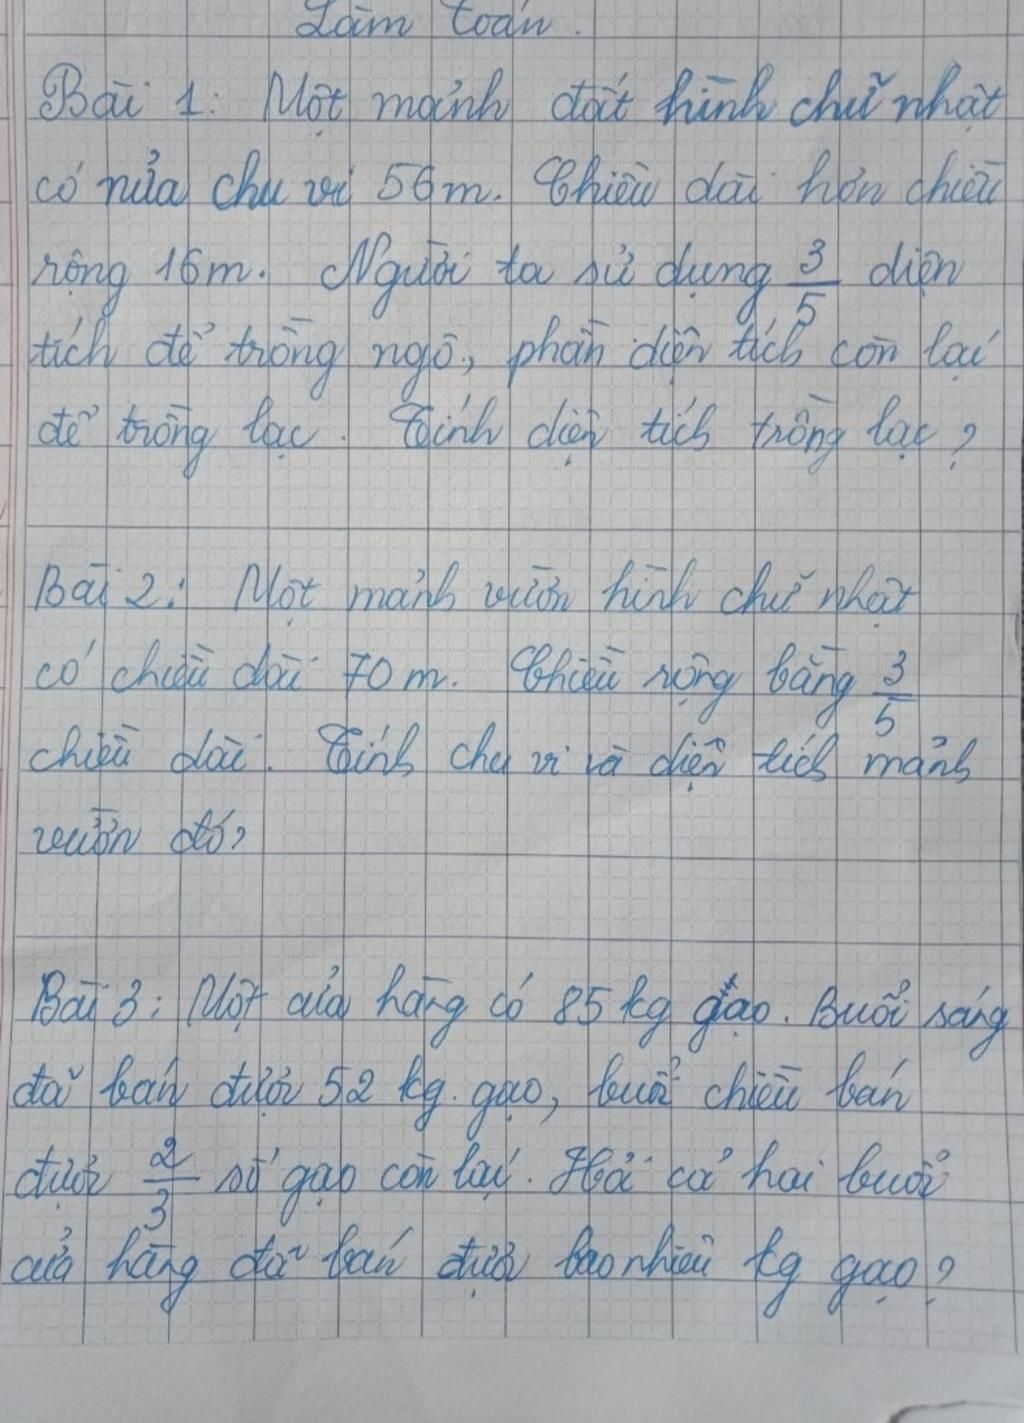 Làm toán.
Bài 1: Một mảnh đất hình chữ nhật
có nửa chu vi 56m. Chiều dài hơn chiều
rộng 16m. Người ta sử dụng 3/5 diện
tích để trồng ngô, phần diện tích còn lại
để trồng lạc. Tính diện tích trồng lạc?
Bài 2: Một mảnh vườn hình chữ nhật
có chiều dài 70 m. Chiều rộng bằng 3/5
chiều dài. Tính chu vi và diện tích mảnh
vườn đó?
Bài 3: Một cửa hàng có 85 kg gạo. Buổi sáng
đã bán được 52 kg gạo, buổi chiều bán
được 2/3 số gạo còn lại. Hỏi cả hai buổi
cửa hàng đã bán được bao nhiêu kg gạo?